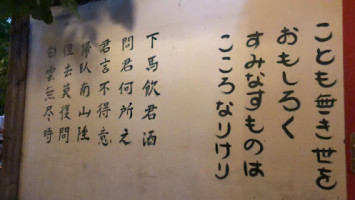 ことも無き世を
おもしろく
すみなすものは
こころなりけり
下馬飲君酒
問君何所之
君言不得意
歸臥南山陲
但去莫復問
白雲無尽時